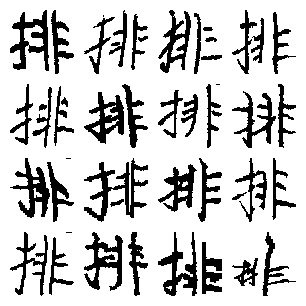 排排排排
排排排排
排排排排
排排排排